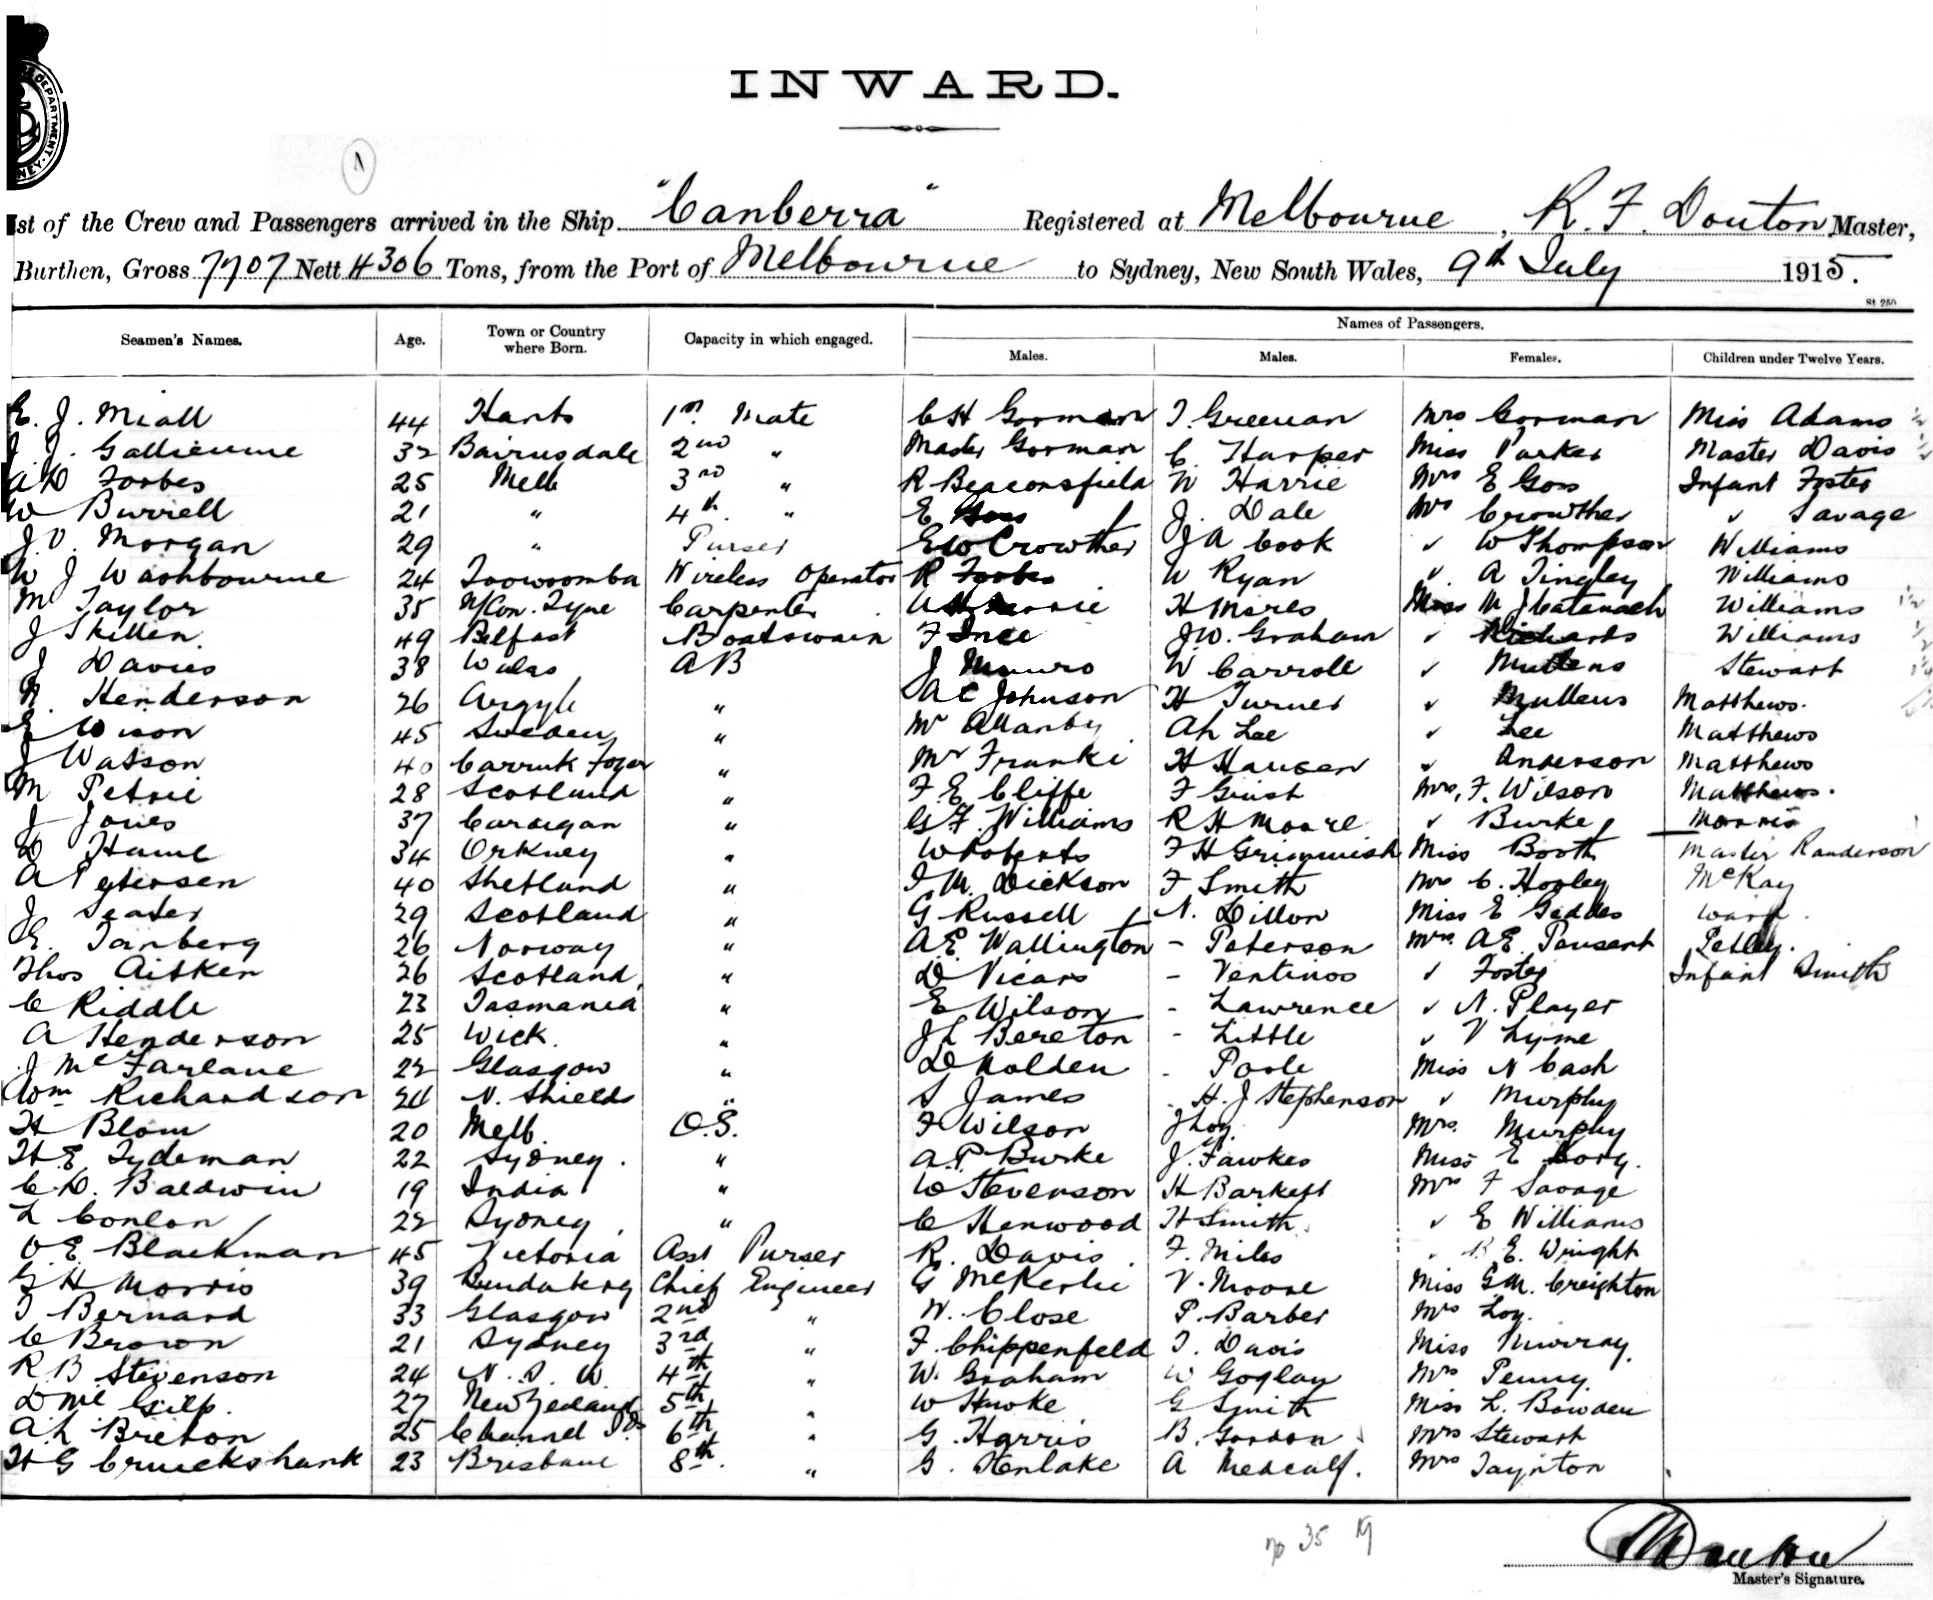 INWARD.
st of the Crew and Passengers arrived in the Ship "Canberra" Registered at Melbourne, R. F. Douton Master,
Burthen, Gross 7707 Nett 4306 Tons, from the Port of Melbourne to Sydney, New South Wales, 9th July 1915.
St. 250
Names of Passengers.
Seamen's Names. Age. Town or Country where Born. Capacity in which engaged. Males. Males. Females. Children under Twelve Years.
E. J. Miall 44 Hants 1st Mate C H Gorman T Greenan Mrs Gorman Miss Adams
J. Gallienne 32 Bairnsdale 2nd " Master Gorman C. Harper Miss Parker Master Davis
A D Forbes 25 Melb 3rd " R Beaconsfield W Harrie Mrs E Goss Infant Foster
W Burrell 21 " 4th " E Goss J. Dale Mrs Crowther " Savage
J. V. Morgan 29 " Purser E W Crowther J A Cook " W Thompson Williams
W J Washbourne 24 Toowoomba Wireless Operator R Forbes W Ryan " A Tingley Williams
M Taylor 35 N/Con. Tyne Carpenter H Mares Miss M J Catanach Williams
J Skillen. 49 Belfast Boatswain F Ince J W. Graham " Richards Williams
J Davies 38 Wales A B J Munro W Carroll " Mullens Stewart
N. Henderson 26 Argyle " A C Johnson H Turner " Mullens Matthews.
45 Sweden " Mr Allanby Ah Lee " Lee Matthews
J Watson 40 " Mr Franki H Hansen " Anderson Matthews
M Petrie 28 Scotland " F. E. Cliffe F Grist Mrs. F. Wilson Matthews.
J Jones 37 Cardigan " G F. Williams R H Moore " Burke Morris
D Hume 34 Orkney " W Roberts F H Grimwish Miss Booth Master Randerson
A Petersen 40 Shetland " J M. Dickson F Smith Mrs C. Hooley McKay
J Seater 29 Scotland " G Russell N. Dillon Miss E Geddes Ward.
E. Tanberg 26 Norway " A E. Wallington - Peterson Mrs. A E. Pausert Petley.
Thos Aitken 26 Scotland " D Vicars - Ventinos " Foster Infant Smith
C Riddle 23 Tasmania " E Wilson - Lawrence " N. Player
A Henderson 25 Wick. " J L Bereton - Little " V Lyme
J McFarlane 22 Glasgow " D Holden - Poole Miss N Cash
Wm Richardson 24 N. Shields " S James - H. J Stephenson " Murphy
H Blom 20 Melb. O.S. F Wilson J Loy. Mrs. Murphy
H. E. Tydeman 22 Sydney. " A. P. Burke J. Fawkes Miss E Cory.
C D. Baldwin 19 India " W Stevenson H Barkett Mrs F Savage
L Conlon 22 Sydney. " C Henwood H Smith. " E Williams
V. E. Blackman 45 Victoria Asst Purser R. Davis F. Miles " B. E. Wright
G H Morris 39 Bundaberg Chief Engineer G McKerlie V. Moore Miss G. M. Creighton
T Bernard 33 Glasgow 2nd " W. Close P. Barber Mrs Loy.
C Brown 21 Sydney 3rd " F. Chippenfeld T. Davis Miss Murray.
R B Stevenson 24 N. S. W. 4th " W. Graham W Goglay Mrs Penny.
D McGilp. 27 New Zealand 5th " W Hawke G Smith Miss L. Bowden
A. L Breton 25 Channel Ids 6th " G. Harris B. Gordon Mrs Stewart
H G Cruickshank 23 Brisbane 8th " G. Henlake A Medcalf. Mrs Taynton
no 35
Master's Signature.